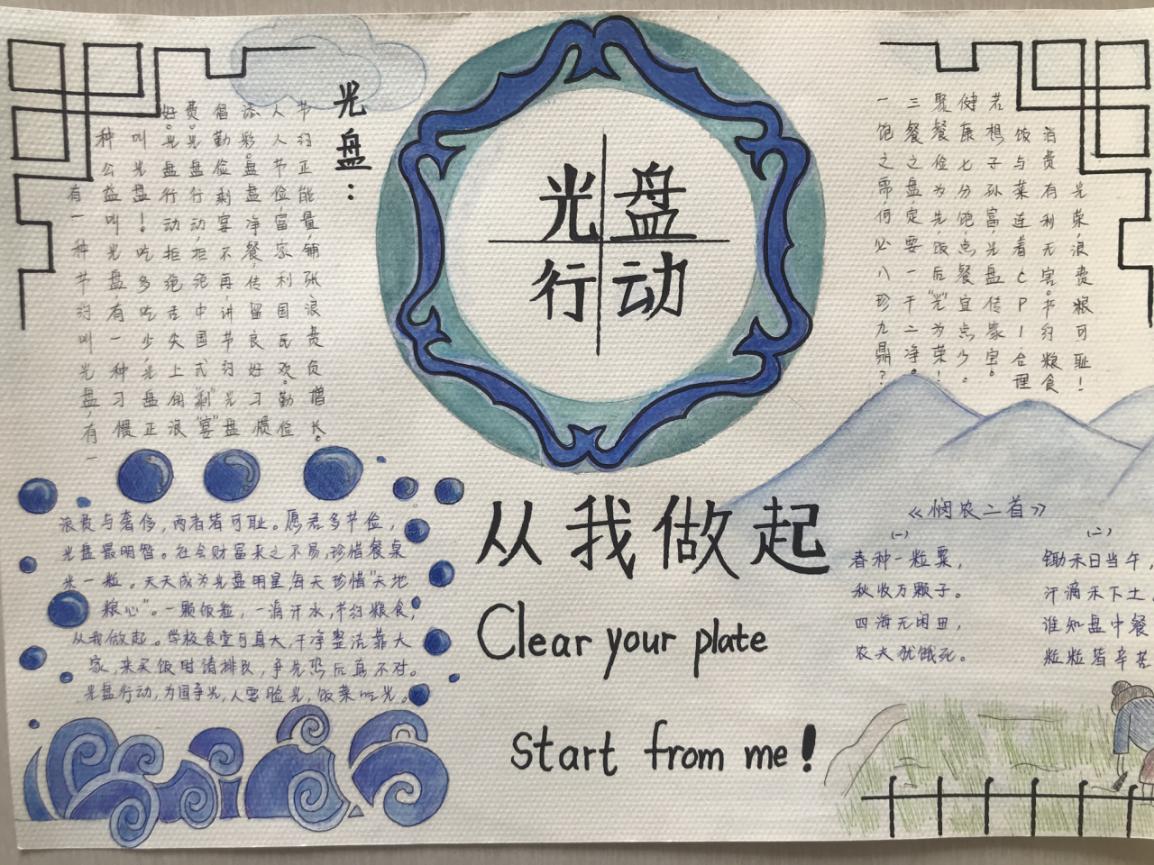 光盘：
有一种节约叫光盘,有一
种公益叫光盘有一种习惯
叫光盘！吃多吃少光盘正
好。光盘行动拒绝舌尖上的浪
费。光盘行动,拒绝中国式“剩宴”
倡勤俭剩宴不再,讲节约光盘
添彩。盘净餐,传留良好习惯
人人节俭富家利国民欢。勤俭
节约正能量铺张浪费负增长。
光盘
行动
一饱之需何必八珍九鼎？
三餐之盘,定要一干二净。
聚餐俭为先,饭后“光”为荣！
健康七分饱点餐宜点少。
若想子孙富光盘传家宝。
饭与菜连着CPI合理
消费有利无害。节约粮食
光荣,浪费粮可耻！
浪费与奢侈，两者皆可耻。愿君多节俭，
光盘最明智。社会财富来之不易，珍惜餐桌
米一粒。天天成为光盘明星,每天珍惜“天地
粮心”。一颗饭粒，一滴汗水，节约粮食，
从我做起。学校食堂可真大，干净整洁靠大
家，来买饭时请排队，争先恐后真不对。
光盘行动，为国争光，人要脸光，饭菜吃光。
从我做起
Clear your plate
start from me！
《悯农二首》
(一)
春种一粒粟，
秋收万颗子。
四海无闲田，
农夫犹饿死。
(二)
锄禾日当午，
汗滴禾下土。
谁知盘中餐
粒粒皆辛苦